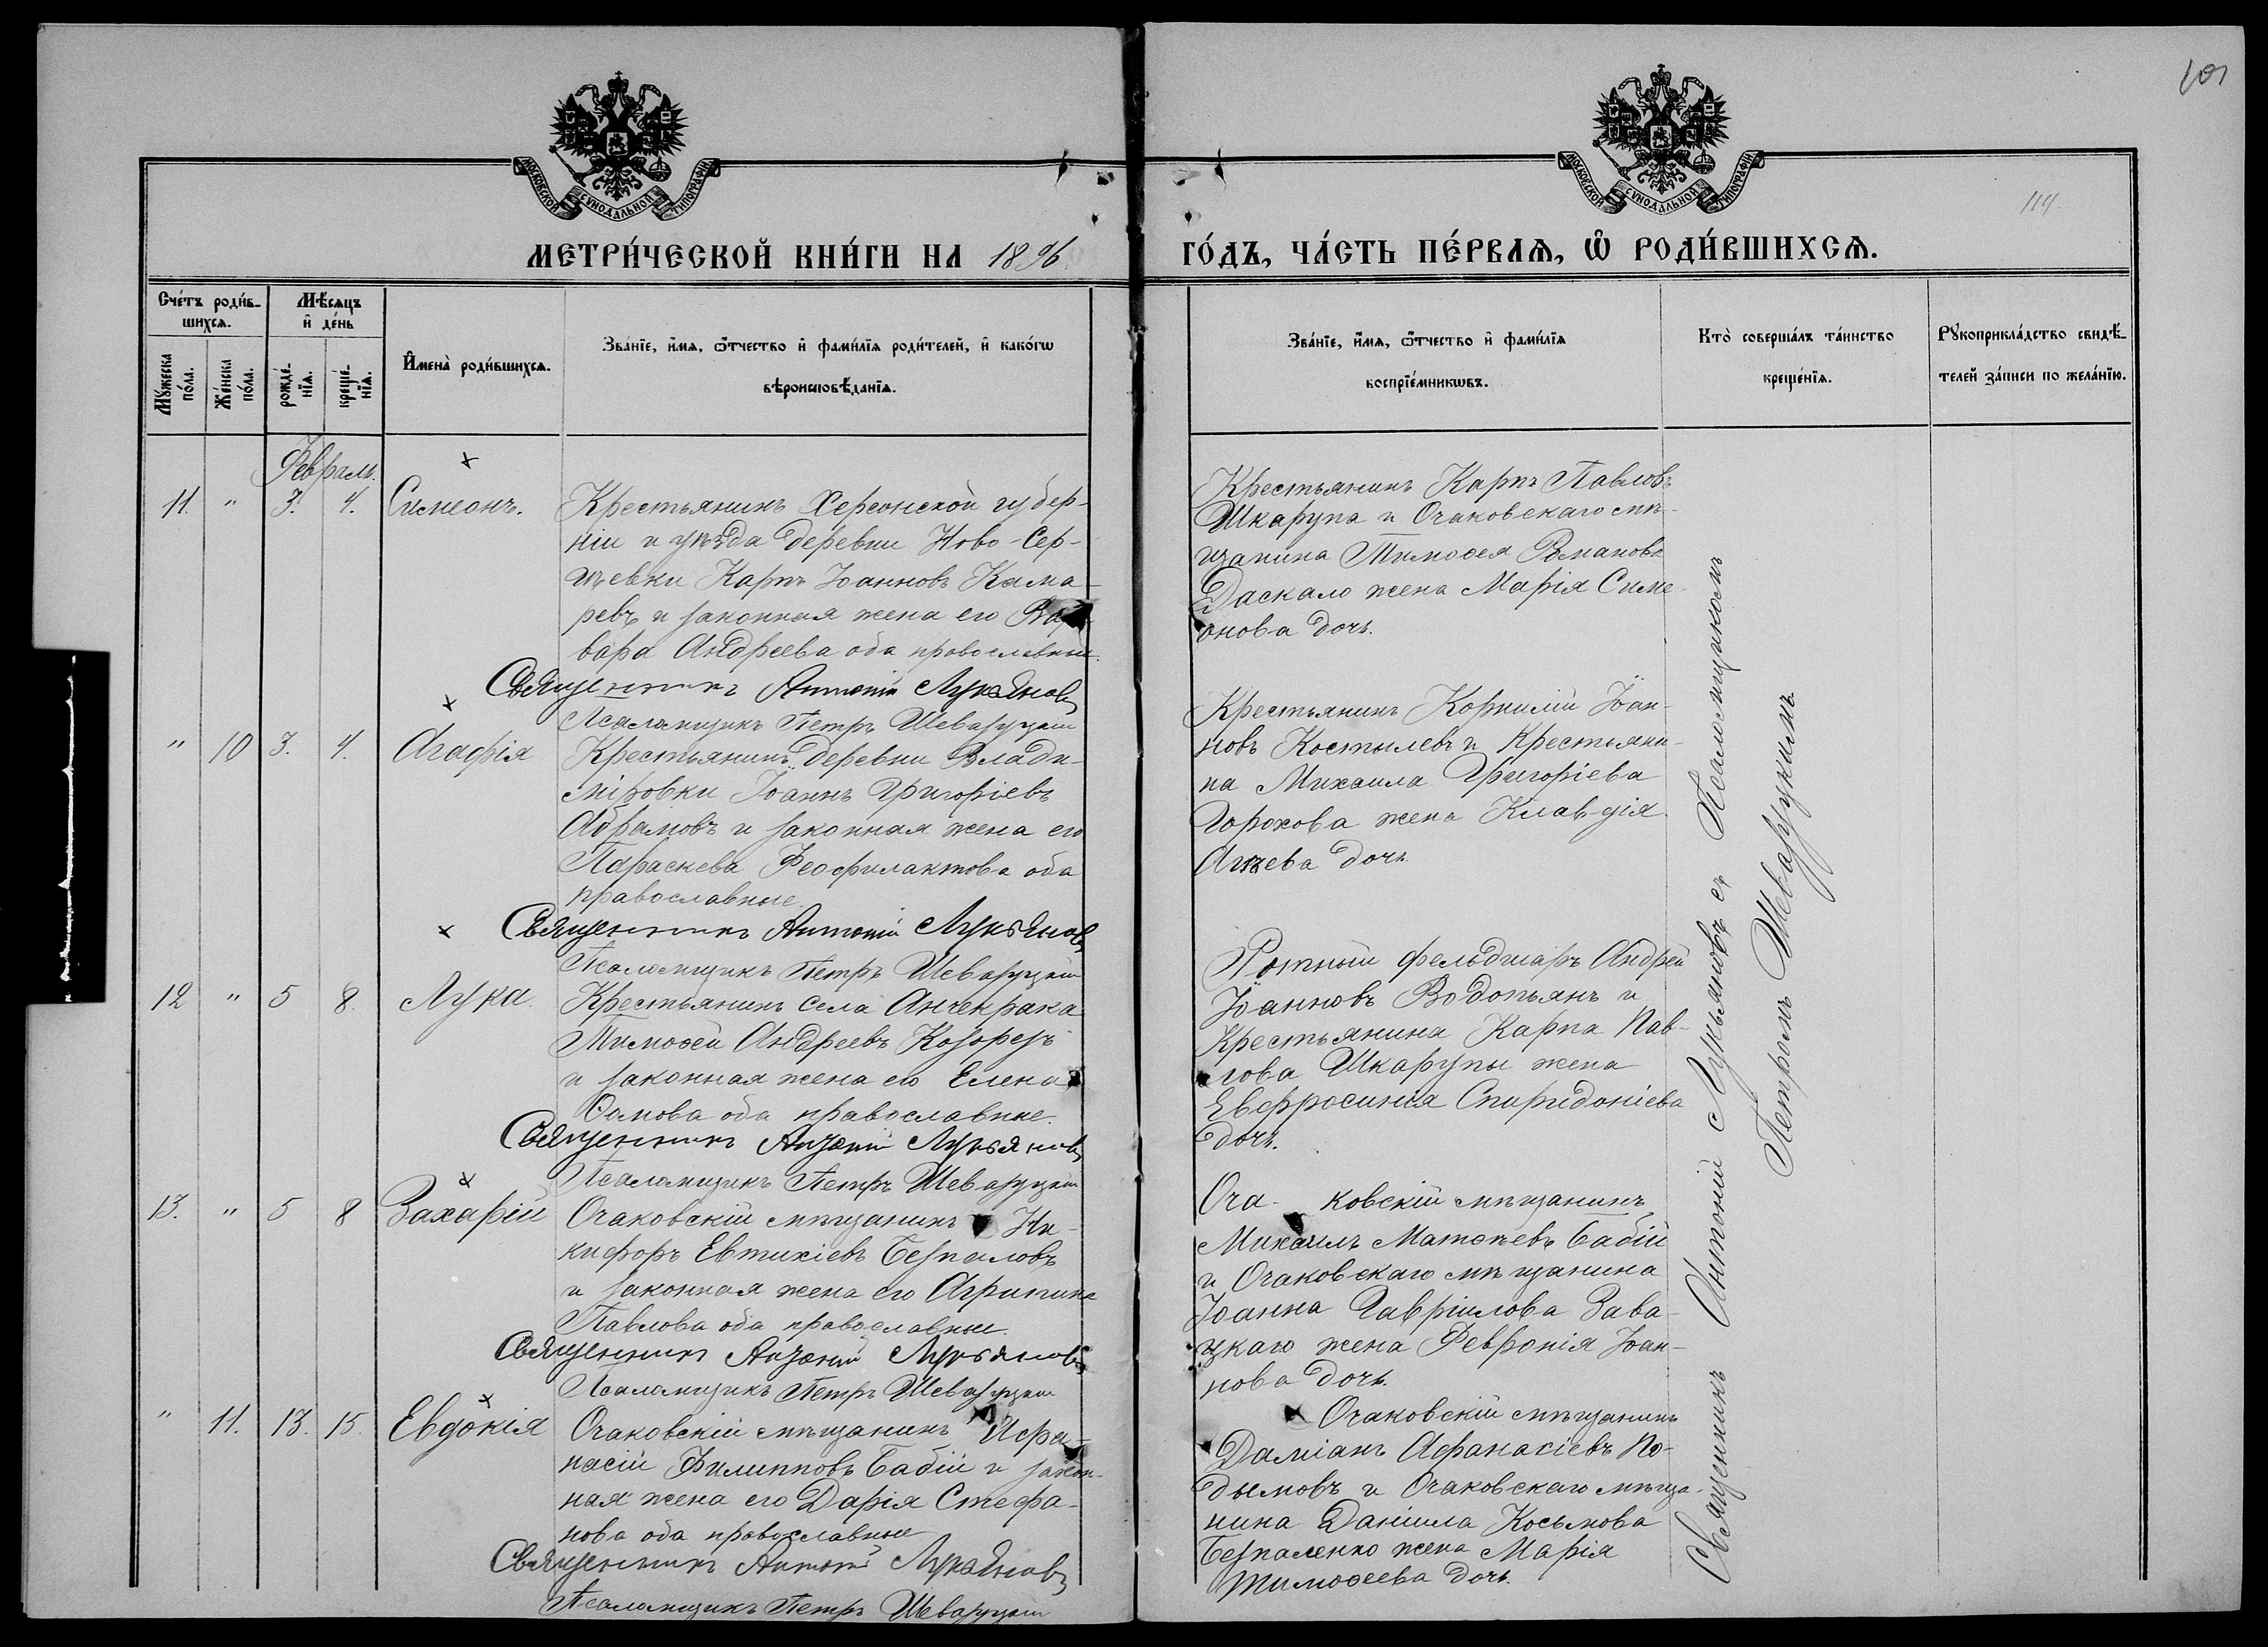 101
МОСКОВСКОЙ СУНОДАЛЬНОЙ ТИПОГРАФІИ
МОСКОВСКОЙ СУНОДАЛЬНОЙ ТИПОГРАФІИ
114.
МЕТРИ́ЧЕСКОЙ КНИ́ГИ НА 1896
ГО́ДЪ, ЧА́СТЬ ПЕ́РВАѦ, Ѡ РОДИ́ВШИХСѦ.
Счéтъ роди́в-
шихсѧ.
Мѣ́сѧцъ
и҆ дéнь
Мꙋ́жеска
пóла.
Жéнска
пóла.
рождé-
нїѧ.
крещé-
нїѧ.
И҆менà роди́вшихсѧ.
Звáнїе, и҆́мѧ, ѻ҆́тчество и҆ фами́лїѧ роди́телей, и҆ какóгѡ
вѣроисповѣ́данїѧ.
Звáнїе, и҆́мѧ, ѻ҆́тчество и҆ фами́лїѧ
воспрїéмникѡвъ.
Ктò совершáлъ тáинство
крещéнїѧ.
Рꙋкоприклáдство свидѣ́-
телей зáписи по желáнїю.
Февраль.
11. " 3. 4. Симеонъ.
Крестьянинъ Херсонской губер-
ніи и уѣзда деревни Ново-Сер-
гѣевки Карпъ Іоанновъ Кама-
ревъ и законная жена его Вар-
вара Андреева оба православные.
Священникъ Антоній Лукьяновъ
Псаломщикъ Петръ Шеваруцкій
Крестьянинъ Карпъ Павловъ
Шкарупа и Очаковскаго мѣ-
щанина Тимоѳея Романова
Даскало жена Марія Симе-
онова дочь.
" 10 3. 4. Агафія
Крестьянинъ деревни Влади-
міровки Іоаннъ Григоріевъ
Абрамовъ и законная жена его
Параскева Феофилактова оба
православные.
Священникъ Антоній Лукьяновъ
Псаломщикъ Петръ Шеваруцкій
Крестьянинъ Корнилій Іоан-
новъ Костылевъ и Крестьяни-
на Михаила Григоріева
Горохова жена Клавдія
Агѣева дочь.
12 " 5 8. Лука.
Крестьянинъ села Анчекрака
Тимоѳей Андреевъ Козорезъ
и законная жена его Елена
Самова оба православные.
Священникъ Антоній Лукьяновъ
Псаломщикъ Петръ Шеваруцкій
Ротный фельдшаръ Андрей
Іоанновъ Водопьянъ и
Крестьянина Карпа Пав-
лова Шкарупы жена
Евфросинія Спиридоніева
дочь.
13. " 5 8 Захарій
Очаковскій мѣщанинъ Ни-
кифоръ Евтихіевъ Безпаловъ
и законная жена его Агрипина
Павлова оба православные.
Священникъ Антоній Лукьяновъ
Псаломщикъ Петръ Шеваруцкій
Оча- ковскій мѣщанинъ
Михаилъ Матѳеевъ Бабій
и Очаковскаго мѣщанина
Іоанна Гавріилова Зава-
цкаго жена Февронія Іоан-
нова дочь.
" 11. 13. 15. Евдокія
Очаковскій мѣщанинъ Афа-
насій Филипповъ Бабій и закон-
ная жена его Дарія Стефа-
нова оба православные
Священникъ Антоній Лукьяновъ
Псаломщикъ Петръ Шеваруцкій
Очаковскій мѣщанинъ
Даміанъ Афанасіевъ По-
дымовъ и Очаковскаго мѣща-
нина Даніила Косьмова
Безпаленко жена Марія
Тимоѳеева дочь.
Священникъ Антоній Лукьяновъ съ Псаломщикомъ
Петромъ Шеваруцкимъ